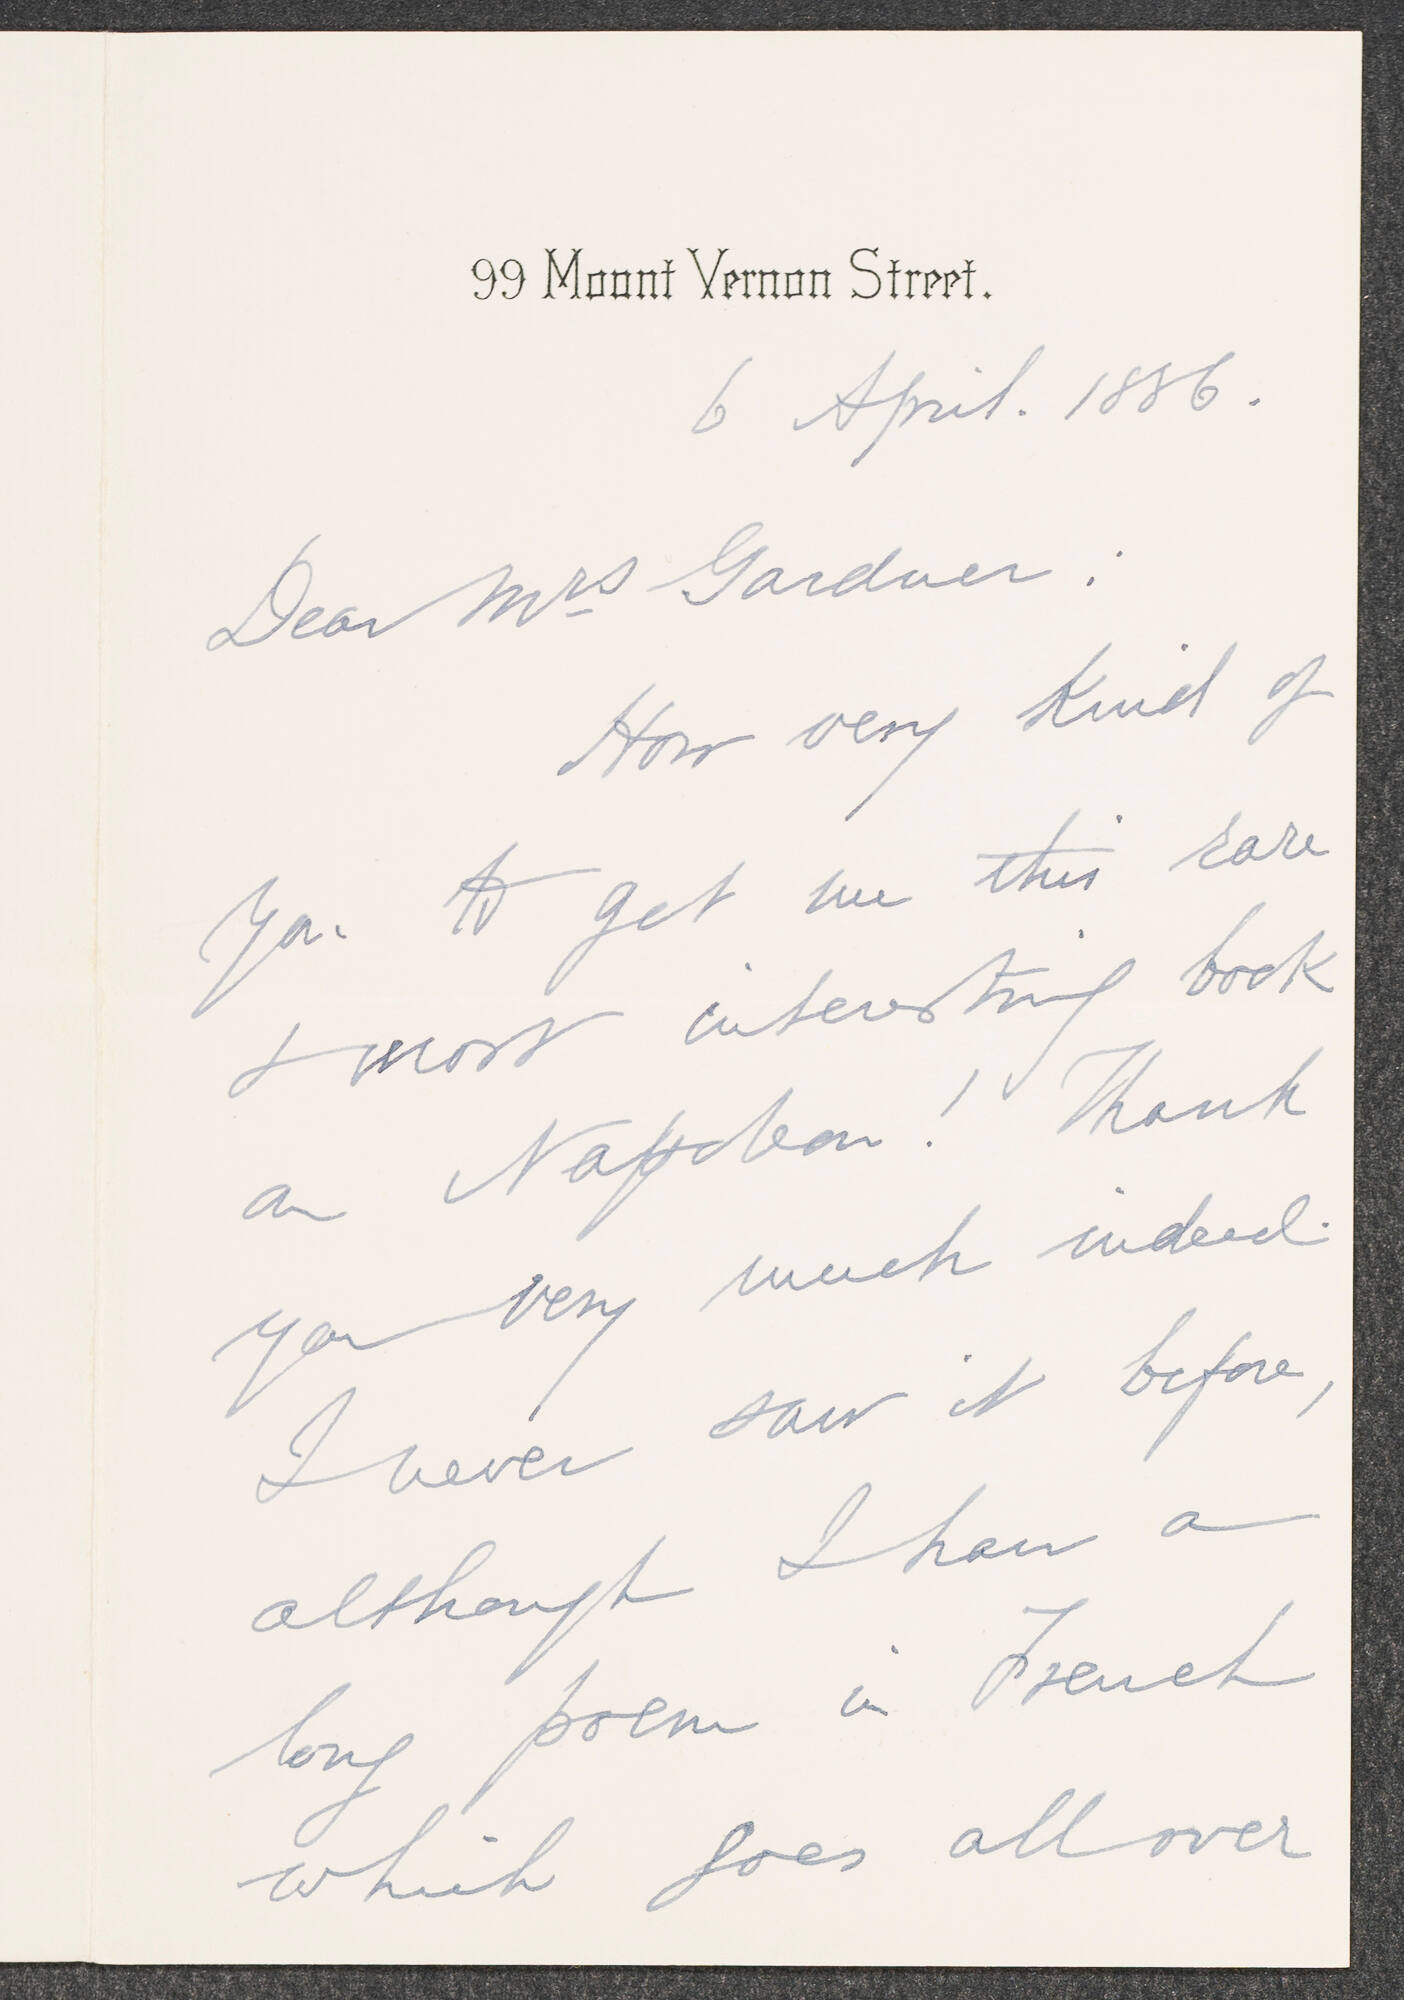 99 Mount Vernon Street.
6 April. 1886.
Dear Mrs Gardner:
How very kind of
you to get me this rare
& most interesting book
on Napoleon! Thank
you very much indeed.
I never saw it before,
although I have a
long poem in French
which goes all over